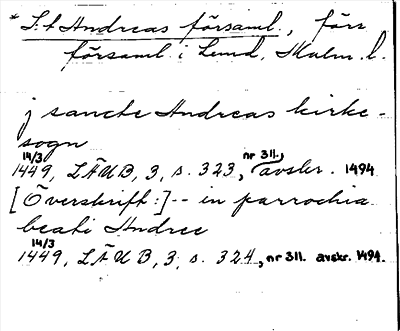 * S:t Andreas församl., förr
församl. i Lund, Malm. l.
j sancte Andreas kirke-
sogn
14/3 1449, LÄUB, 3, s. 323, nr 311, avskr. 1494
[Överskrift:] -- in parrochia
beati Andree
14/3 1449, LÄUB, 3, s. 324, nr 311. avskr. 1494.